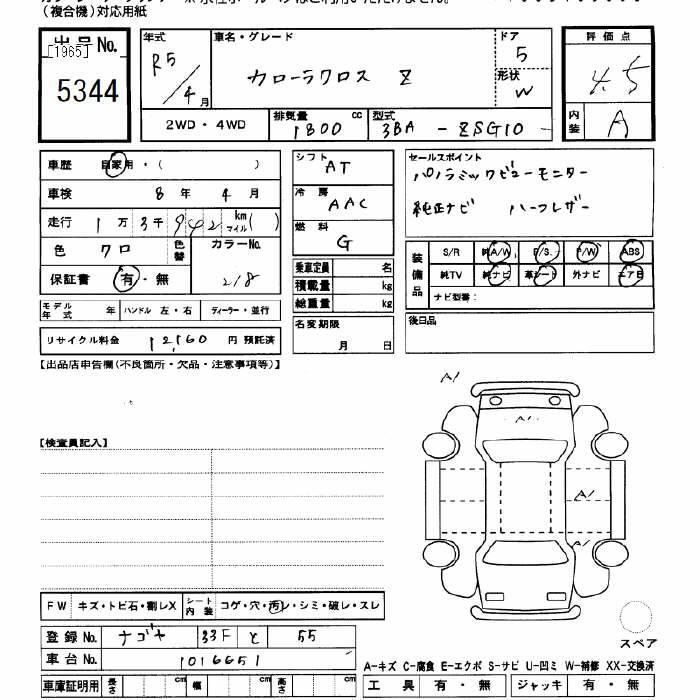 (複合機)対応用紙
出品No.
[1965]
5344
年式
R5/4月
車名・グレード
カローラクロス Z
ドア
5
形状
W
2WD・4WD
排気量 cc
1800
型式
3BA - ZSG10
評価点
4.5
内装
A
車歴 自家用・( )
車検 8年 4月
走行 1万 3千 942 km マイル( )
色 クロ 色替
カラーNo.
218
保証書 有・無
モデル年式 年 ハンドル 左・右 ディーラー・並行
リサイクル料金 12,160 円 預託済
シフト
AT
冷房
AAC
燃料
G
乗車定員 名
積載量 kg
総重量 kg
名変期限
月 日
セールスポイント
パノラミックビューモニター
純正ナビ ハーフレザー
装備品
S/R 純A/W P/S P/W ABS
純TV 純ナビ 革シート 外ナビ エアB
ナビ型番:
後日品
【出品店申告欄(不良箇所・欠品・注意事項等)】
【検査員記入】
A1
A1
A1
A1
スペア
FW キズ・トビ石・割レX シート内装 コゲ・穴・汚レ・シミ・破レ・スレ
登録No. ナゴヤ 33F と 55
車台No. 1016651
車庫証明用 長さ cm 幅 cm 高さ cm
A-キズ C-腐食 E-エクボ S-サビ U-凹ミ W-補修 XX-交換済
工具 有・無 ジャッキ 有・無